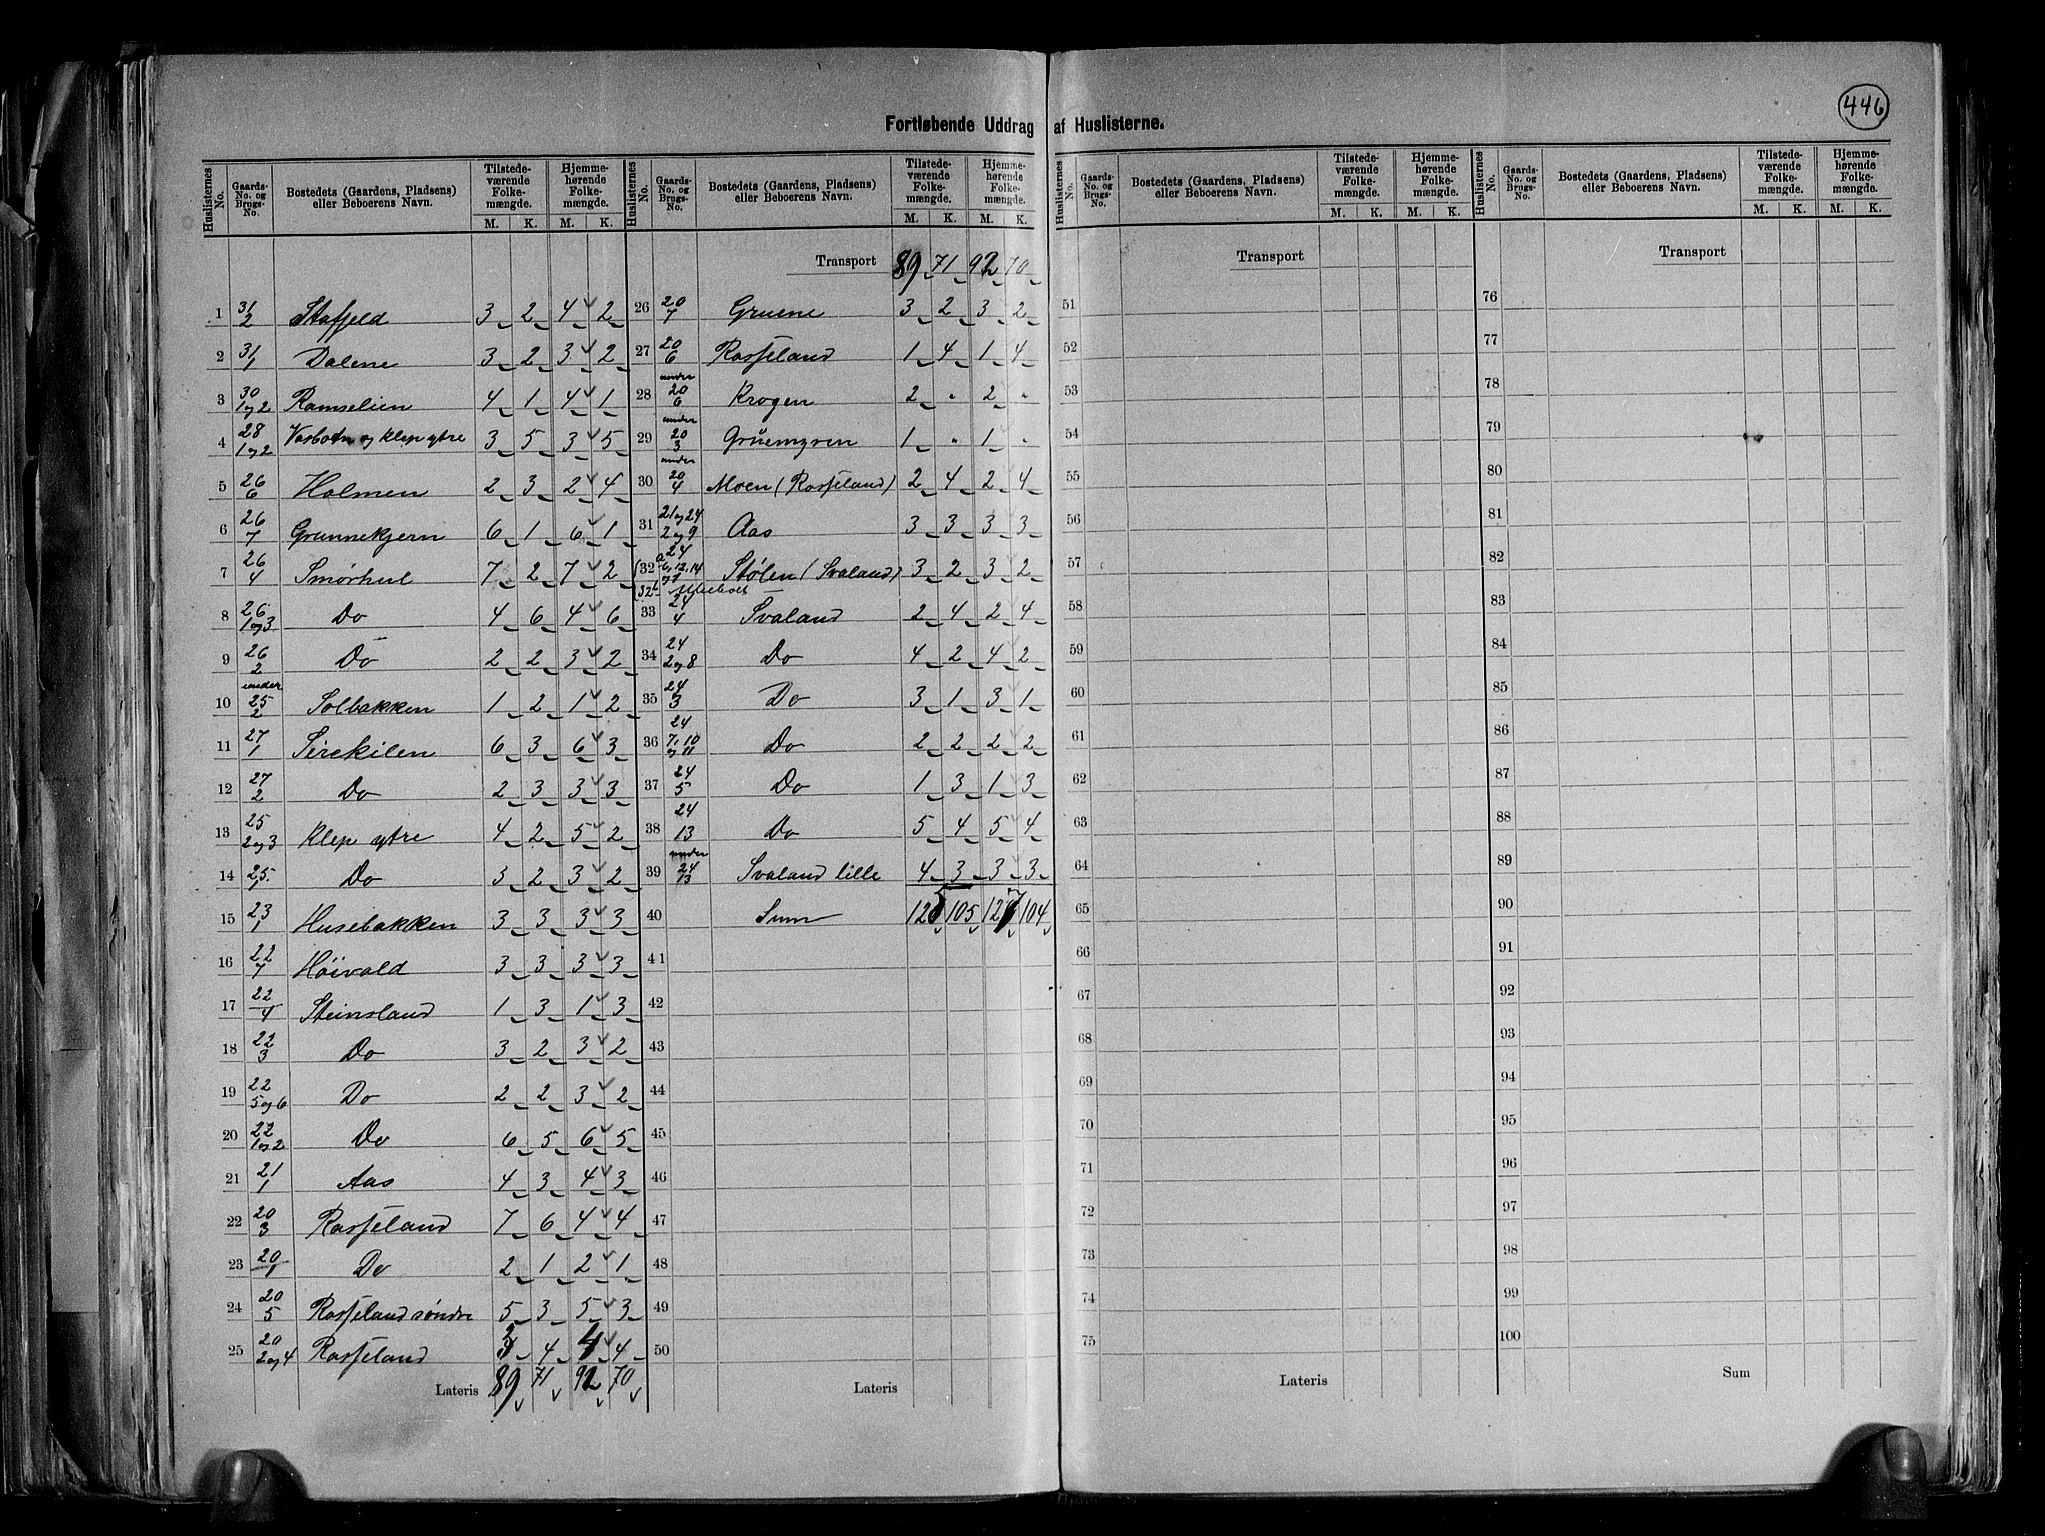 446
Fortløbende Uddrag af Huslisterne.
Huslisternes No. | Gaards-No. og Brugs-No. | Bostedets (Gaardens, Pladsen) eller Beboerens Navn. | Tilstedeværende Folkemængde. M. K. | Hjemmehørende Folkemængde. M. K.
1 31/2 Stafjeld 3 2 4 2
2 31/1 Dalene 3 2 3 2
3 30/1og2 Ramselien 4 1 4 1
4 28/1og2 Vasbotn og Klep ytre 3 5 3 5
5 26/6 Holmen 2 3 2 4
6 26/7 Grunnekjern 6 1 6 1
7 26/4 Smørhul 7 2 7 2
8 26/1og3 Do 4 6 4 6
9 26/2 Do 2 2 3 2
10 under 25/2 Solbakken 1 2 1 2
11 27/1 Sirekilen 6 3 6 3
12 27/2 Do 2 3 3 3
13 25/2og3 Klep ytre 4 2 5 2
14 25/1 Do 3 2 3 2
15 23/1 Husebakken 3 3 3 3
16 22/7 Høivold 3 3 3 3
17 22/4 Steinsland 1 3 1 3
18 22/3 Do 3 2 3 2
19 22/5og6 Do 2 2 3 2
20 22/1og2 Do 6 5 6 5
21 21/1 Aas 4 3 4 3
22 20/3 Rosseland 7 6 4 4
23 20/1 Do 2 1 2 1
24 20/5 Rosseland søndre 5 3 5 3
25 20/2og4 Rosseland 3 4 4 4
Lateris 89 71 92 70
Huslisternes No. | Gaards-No. og Brugs-No. | Bostedets (Gaarden, Pladsen) eller Beboerens Navn. | Tilstedeværende Folkemængde. M. K. | Hjemmehørende Folkemængde. M. K.
Transport 89 71 92 70
26 20/7 Gruene 3 2 3 2
27 20/6 Rosseland 1 4 1 4
28 under 20/6 Krogen 2 " 2 "
29 under 20/3 Gruemyren 1 " 1 "
30 under 20/4 Moen (Rosseland) 2 4 2 4
31 21og24/2og9 Aas 3 3 3 3
32 24/6,12,14 og 1 Stølen (Svaland) 3 2 3 2
32b
33 24/4 Svaland 2 4 2 4
34 24/2og8 Do 4 2 4 2
35 24/3 Do 3 1 3 1
36 24/7,10 og 11 Do 2 2 2 2
37 24/5 Do 1 3 1 3
38 24/13 Do 5 4 5 4
39 under 24/13 Svaland lille 4 3 3 3
40 Sum 125 105 127 104
41
42
43
44
45
46
47
48
49
50
Lateris
Huslisternes No. | Gaards-No. og Brugs-No. | Bostedets (Gaardens, Pladsens) eller Beboerens Navn. | Tilstedeværende Folkemængde. M. K. | Hjemmehørende Folkemængde. M. K.
Transport
51
52
53
54
55
56
57
58
59
60
61
62
63
64
65
66
67
68
69
70
71
72
73
74
75
Lateris
Huslisternes No. | Gaards-No. og Brugs-No. | Bostedets (Gaardens, Pladsens) eller Beboerens Navn. | Tilstedeværende Folkemængde. M. K. | Hjemmehørende Folkemængde. M. K.
Transport
76
77
78
79
80
81
82
83
84
85
86
87
88
89
90
91
92
93
94
95
96
97
98
99
100
Sum